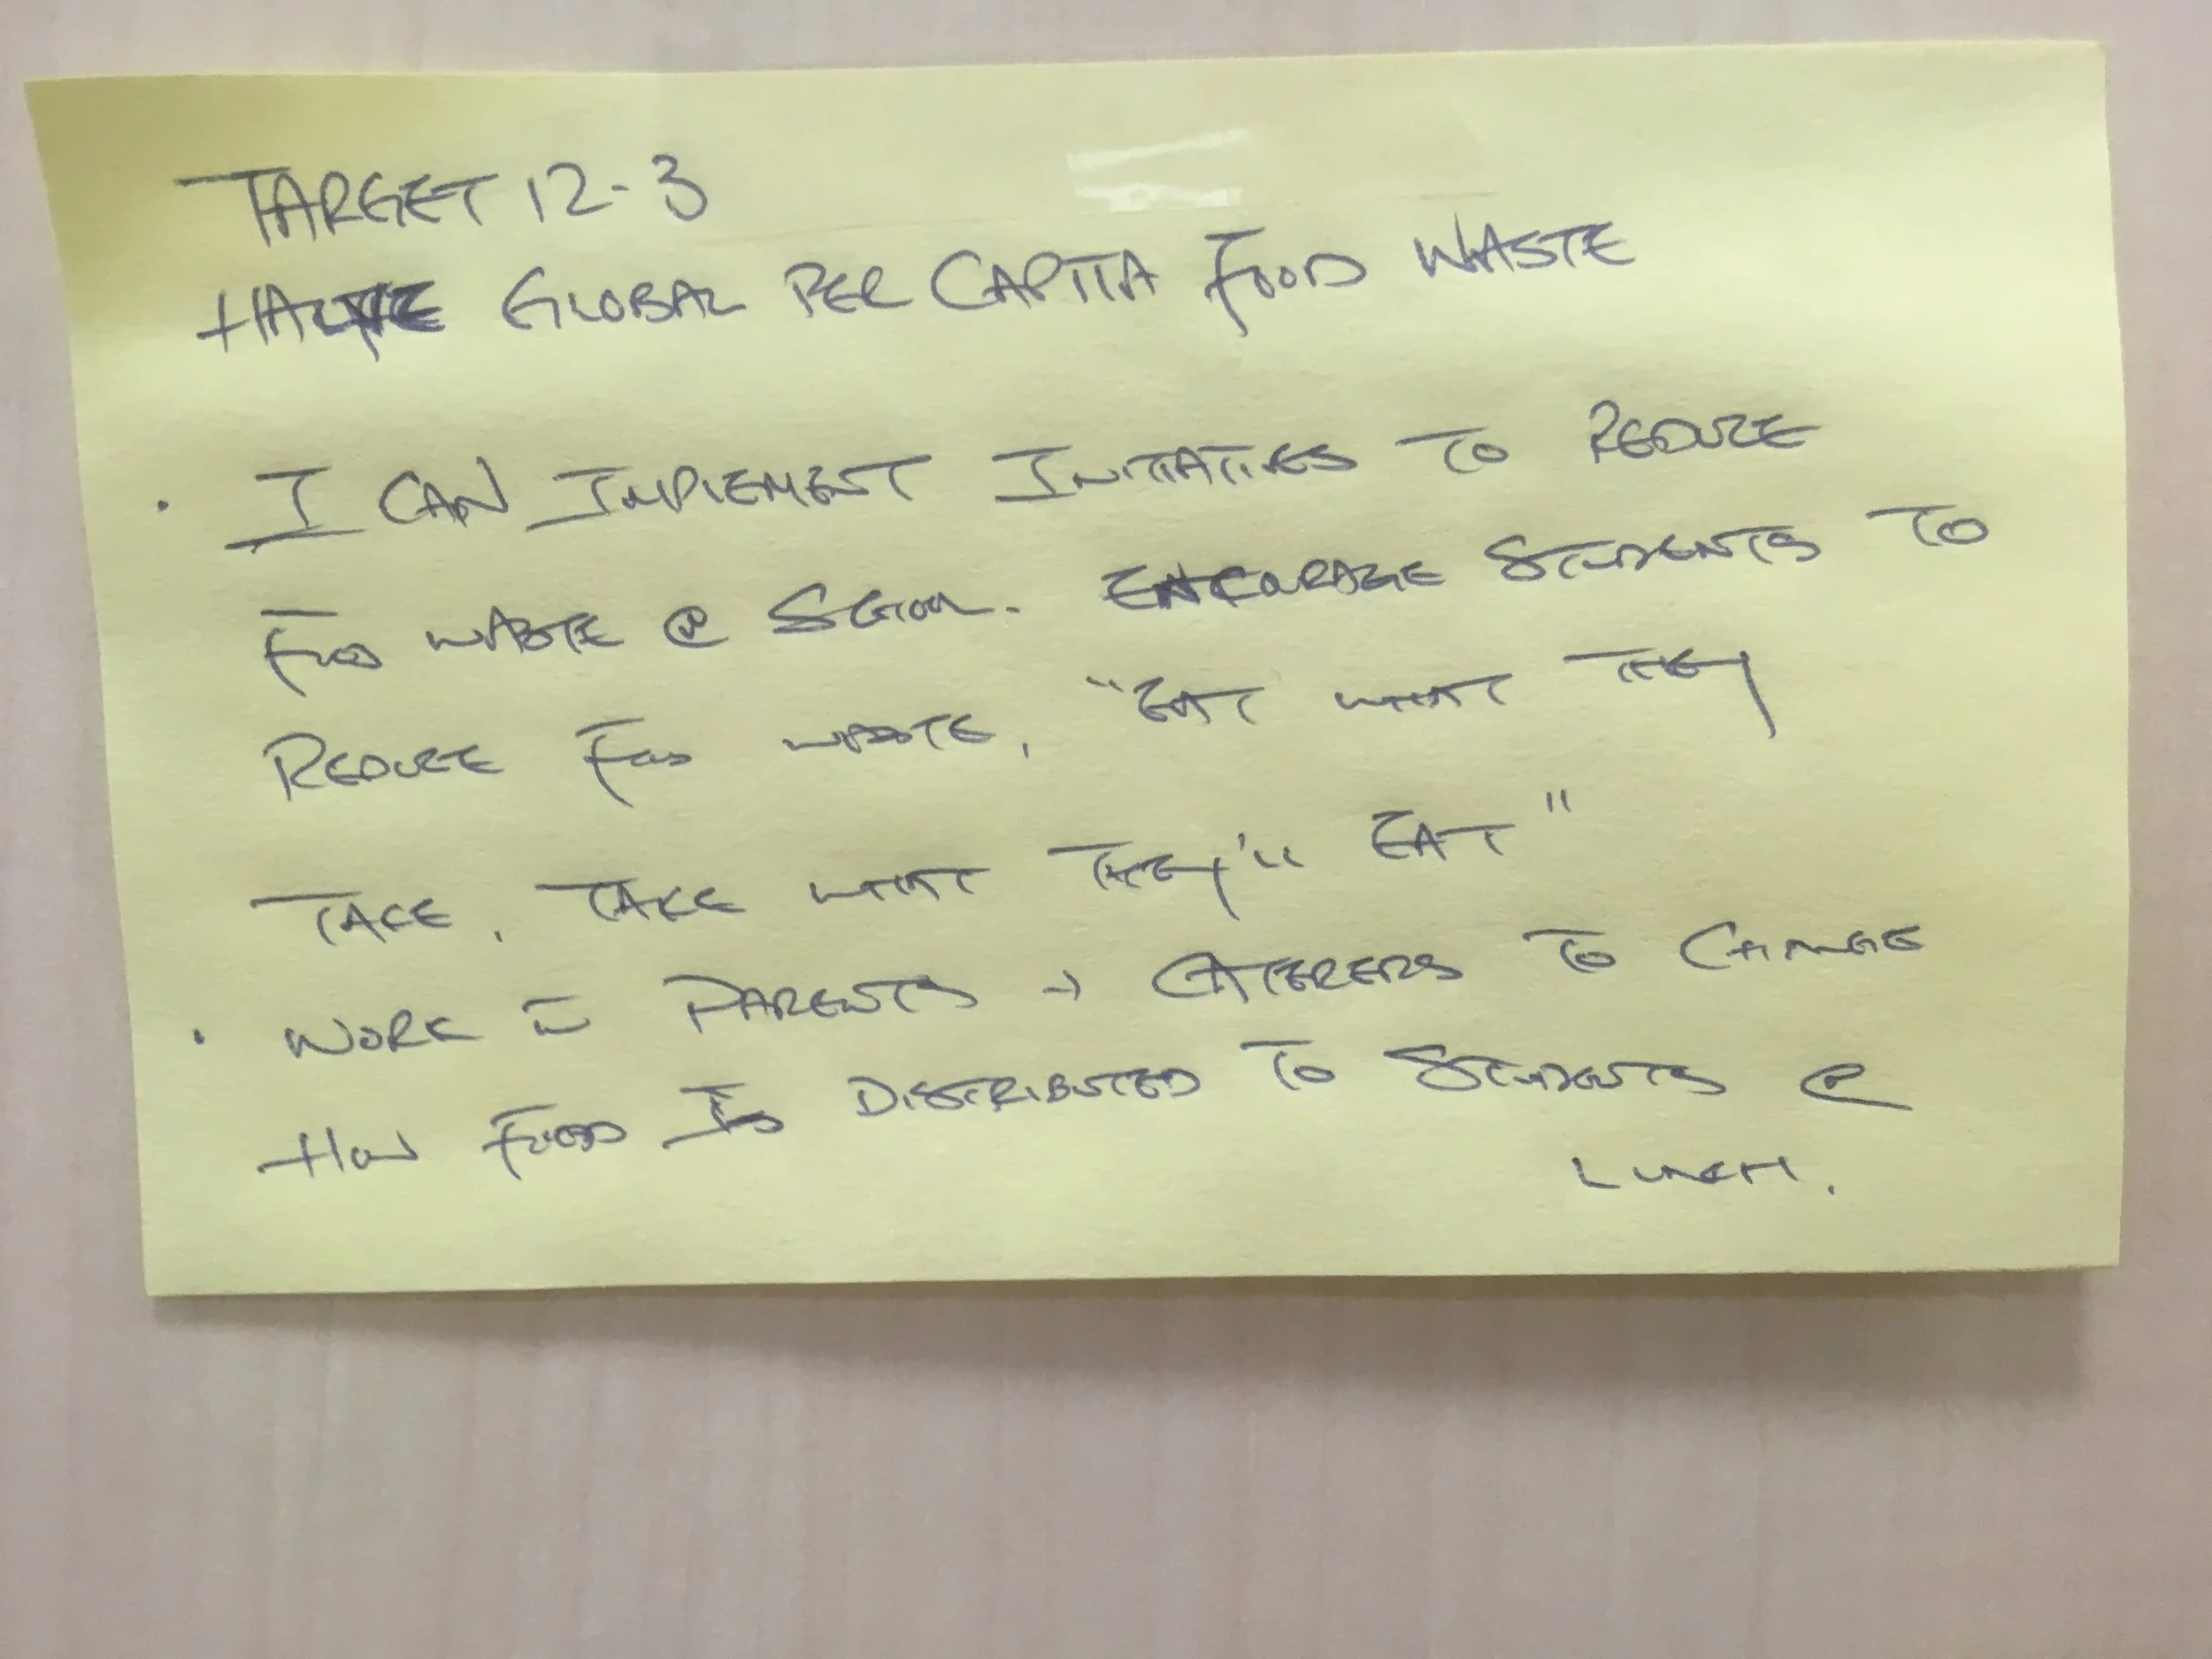 TARGET 12-3
HALVE GLOBAL PER CAPITA FOOD WASTE
· I CAN IMPLEMENT INITIATIVES TO REDUCE
FOOD WASTE @ SCHOOL. ENCOURAGE STUDENTS TO
REDUCE FOOD WASTE, "EAT WHAT THEY
TAKE, TAKE WHAT THEY'LL EAT"
· WORK PARENTS CATERERS TO CHANGE
HOW FOOD IS DISTRIBUTED TO STUDENTS @
LUNCH.